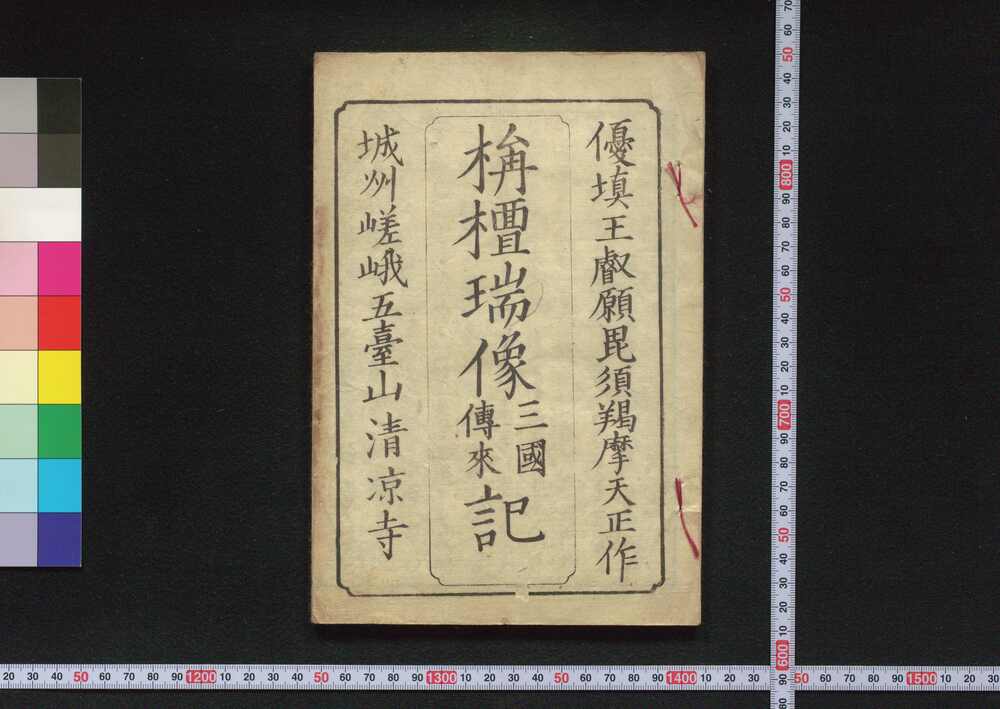 優填王叡願毘須羯摩天正作
栴檀瑞像三國傳來記
城州嵯峨五臺山清凉寺
70 60 50 40 30 20 10 800 90 80 70 60 50 40 30 20 10 700 90 80 70 60 50 40 30 20 10 600 90
20 30 40 50 60 70 80 90 1200 10 20 30 40 50 60 70 80 90 1300 10 20 30 40 50 60 70 80 90 1400 10 20 30 50 60 70 80 90 1500 10 20 30